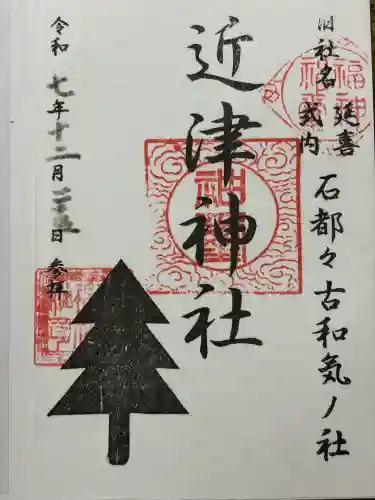 旧社名
延喜
式内
石都々古和気ノ社
近津神社
令和七年十二月二十五日参拝